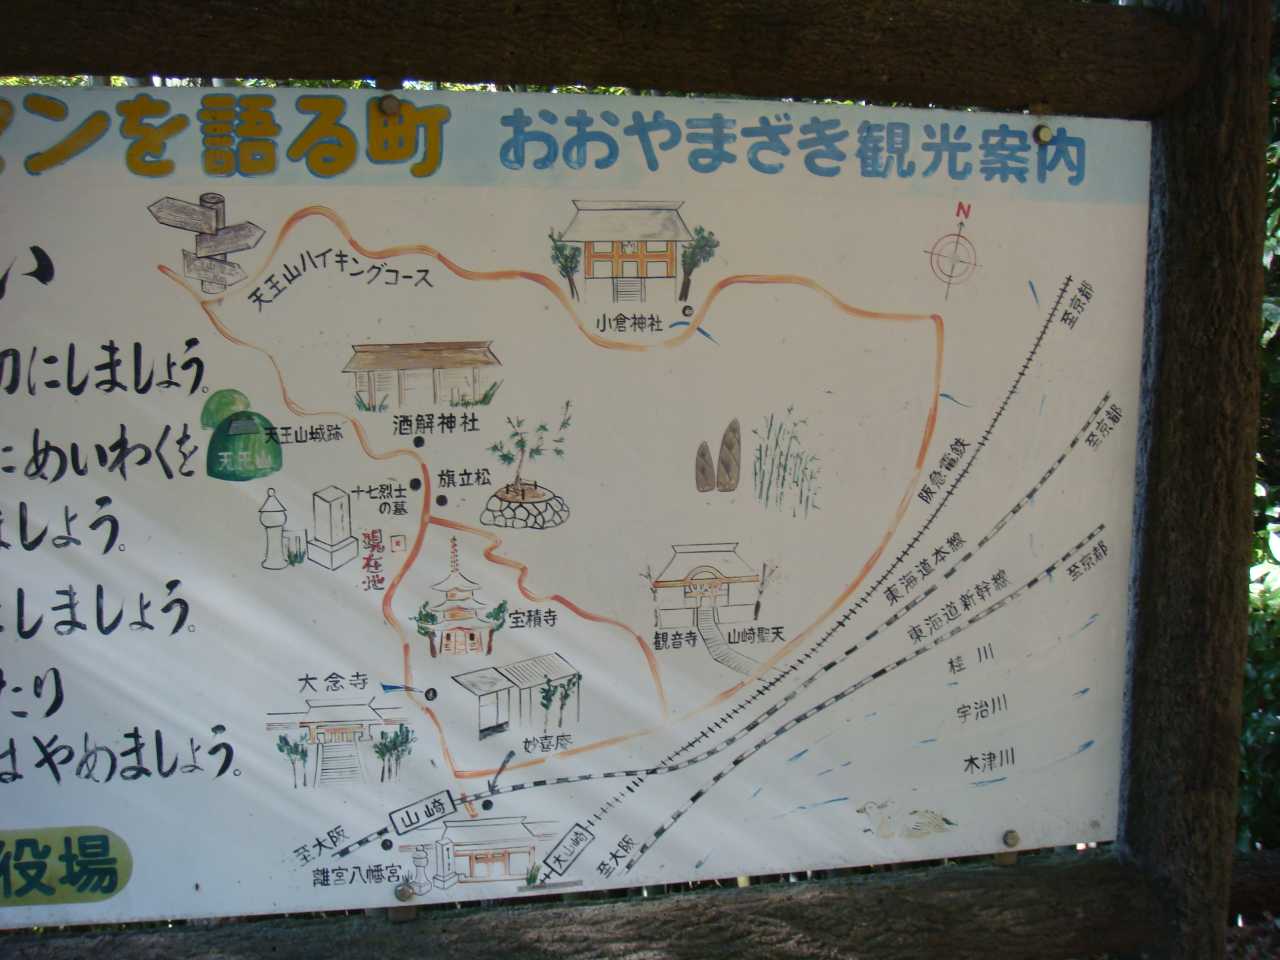 マンを語る町 おおやまざき観光案内
い
N
天王山ハイキングコース
至京都
小倉神社
切にしましょう。
至京都
酒解神社
天王山城跡
にめいわくを
天王山
阪急電鉄
旗立松
十七烈士
の墓
ましょう。
現在地
東海道本線
至京都
東海道新幹線
しましょう。
宝積寺
観音寺
山崎聖天
桂川
大念寺
たり
宇治川
妙喜庵
はやめましょう。
木津川
山崎
至大阪
大山崎
至大阪
役場
離宮八幡宮